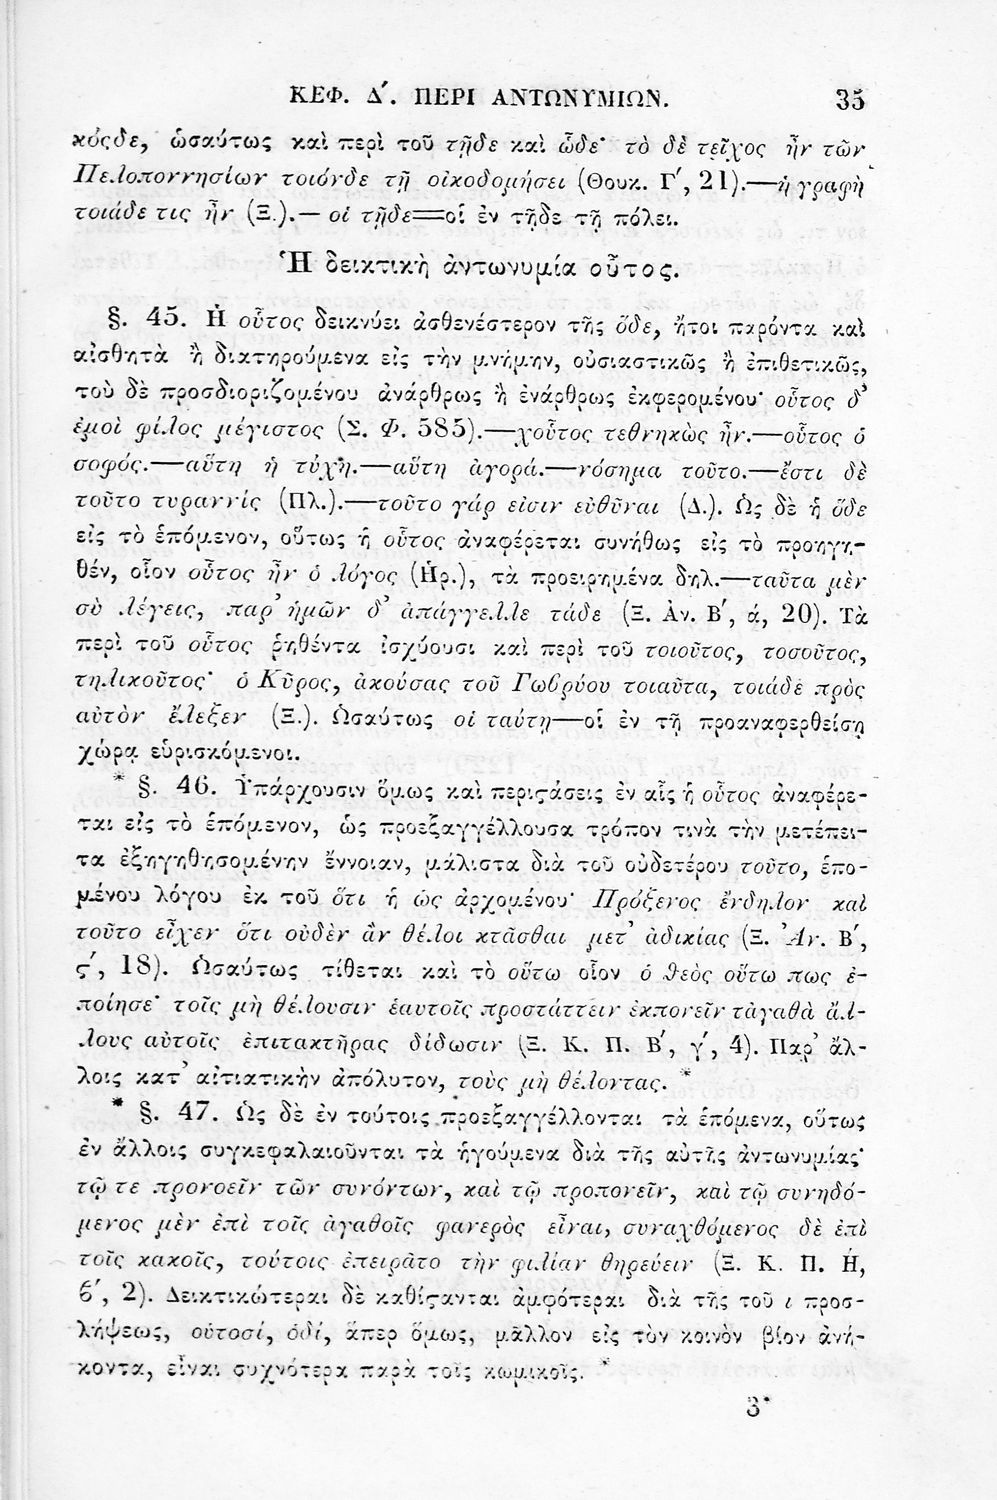 ΚΕΦ. Δ΄. ΠΕΡΙ ΑΝΤΩΝΥΜΙΩΝ. 35
κόςδε, ὡσαύτως καὶ περὶ τοῦ τῇδε καὶ ὧδε· τὸ δὲ τεῖχος ἦν τῶν
Πελοποννησίων τοιόνδε τῇ οἰκοδομήσει (Θουκ. Γ΄, 21).—ἡ γραφὴ
τοιάδε τις ἦν (Ξ.).— οἱ τῇδε=οἱ ἐν τῇδε τῇ πόλει.
Ἡ δεικτικὴ ἀντωνυμία οὗτος.
§. 45. Ἡ οὗτος δεικνύει ἀσθενέστερον τῆς ὅδε, ἤτοι παρόντα καὶ
αἰσθητὰ ἢ διατηρούμενα εἰς τὴν μνήμην, οὐσιαστικῶς ἢ ἐπιθετικῶς,
τοὺ δὲ προσδιοριζομένου ἀνάρθρως ἢ ἐνάρθρως ἐκφερομένου· οὗτος δ’
ἐμοὶ φίλος μέγιστος (Σ. Φ. 585).—χοὗτος τεθνηκὼς ἦν.—οὗτος ὁ
σοφός.—αὕτη ἡ τύχη.—αὕτη ἀγορά.—νόσημα τοῦτο.—ἔστι δὲ
τοῦτο τυραννίς (Πλ.).—τοῦτο γάρ εἰσιν εὐθῦναι (Δ.). Ὡς δὲ ἡ ὅδε
εἰς τὸ ἑπόμενον, οὕτως ἡ οὗτος ἀναφέρεται συνήθως εἰς τὸ προηγη-
θέν, οἷον οὗτος ἦν ὁ λόγος (Ἡρ.), τὰ προειρημένα δηλ.—ταῦτα μὲν
σὺ λέγεις, παρ’ ἡμῶν δ’ ἀπάγγελλε τάδε (Ξ. Ἀν. Β΄, ά, 20). Τὰ
περὶ τοῦ οὗτος ῥηθέντα ἰσχύουσι καὶ περὶ τοῦ τοιοῦτος, τοσοῦτος,
τηλικοῦτος· ὁ Κῦρος, ἀκούσας τοῦ Γωβρύου τοιαῦτα, τοιάδε πρὸς
αὐτὸν ἔλεξεν (Ξ.). Ὡσαύτως οἱ ταύτῃ—οἱ ἐν τῇ προαναφερθείσῃ
χώρᾳ εὑρισκόμενοι.
* §. 46. Ὑπάρχουσιν ὅμως καὶ περιϛάσεις ἐν αἷς ἡ οὗτος ἀναφέρε-
ται εἰς τὸ ἑπόμενον, ὡς προεξαγγέλλουσα τρόπον τινὰ τὴν μετέπει-
τα ἐξηγηθησομένην ἔννοιαν, μάλιστα διὰ τοῦ οὐδετέρου τοῦτο, ἑπο-
μένου λόγου ἐκ τοῦ ὅτι ἢ ὡς ἀρχομένου· Πρόξενος ἔνδηλον καὶ
τοῦτο εἶχεν ὅτι οὐδὲν ἂν θέλοι κτᾶσθαι μετ’ ἀδικίας (Ξ. Ἀν. Β΄,
ϛ΄, 18). Ὡσαύτως τίθεται καὶ τὸ οὕτω οἷον ὁ θεὸς οὕτω πως ἐ-
ποίησε· τοῖς μὴ θέλουσιν ἑαυτοῖς προστάττειν ἐκπονεῖν τἀγαθὰ ἄλ-
λους αὐτοῖς ἐπιτακτῆρας δίδωσιν (Ξ. Κ. Π. Β΄, γ΄, 4). Παρ’ ἄλ-
λοις κατ’ αἰτιατικὴν ἀπόλυτον, τοὺς μὴ θέλοντας. *
* §. 47. Ὡς δὲ ἐν τούτοις προεξαγγέλλονται τὰ ἑπόμενα, οὕτως
ἐν ἄλλοις συγκεφαλαιοῦνται τὰ ἡγούμενα διὰ τῆς αὐτῆς ἀντωνυμίας·
τῷ τε προνοεῖν τῶν συνόντων, καὶ τῷ προπονεῖν, καὶ τῷ συνηδό-
μενος μὲν ἐπὶ τοῖς ἀγαθοῖς φανερὸς εἶναι, συναχθόμενος δὲ ἐπὶ
τοῖς κακοῖς, τούτοις ἐπειρᾶτο τὴν φιλίαν θηρεύειν (Ξ. Κ. Π. Ή,
ϐ΄, 2). Δεικτικώτεραι δὲ καθίϛανται ἀμφότεραι διὰ τῆς τοῦ ι προσ-
λήψεως, οὑτοσί, ὁδί, ἅπερ ὅμως, μᾶλλον εἰς τὸν κοινὸν βίον ἀνή-
κοντα, εἶναι συχνότερα παρὰ τοῖς κωμικοῖς. *
3*